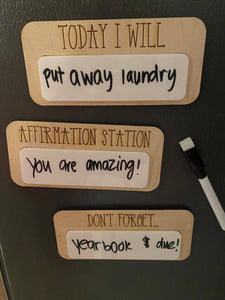 TODAY I WILL
put away laundry
AFFIRMATION STATION
You are amazing!
DON'T FORGET...
yearbook $ due!